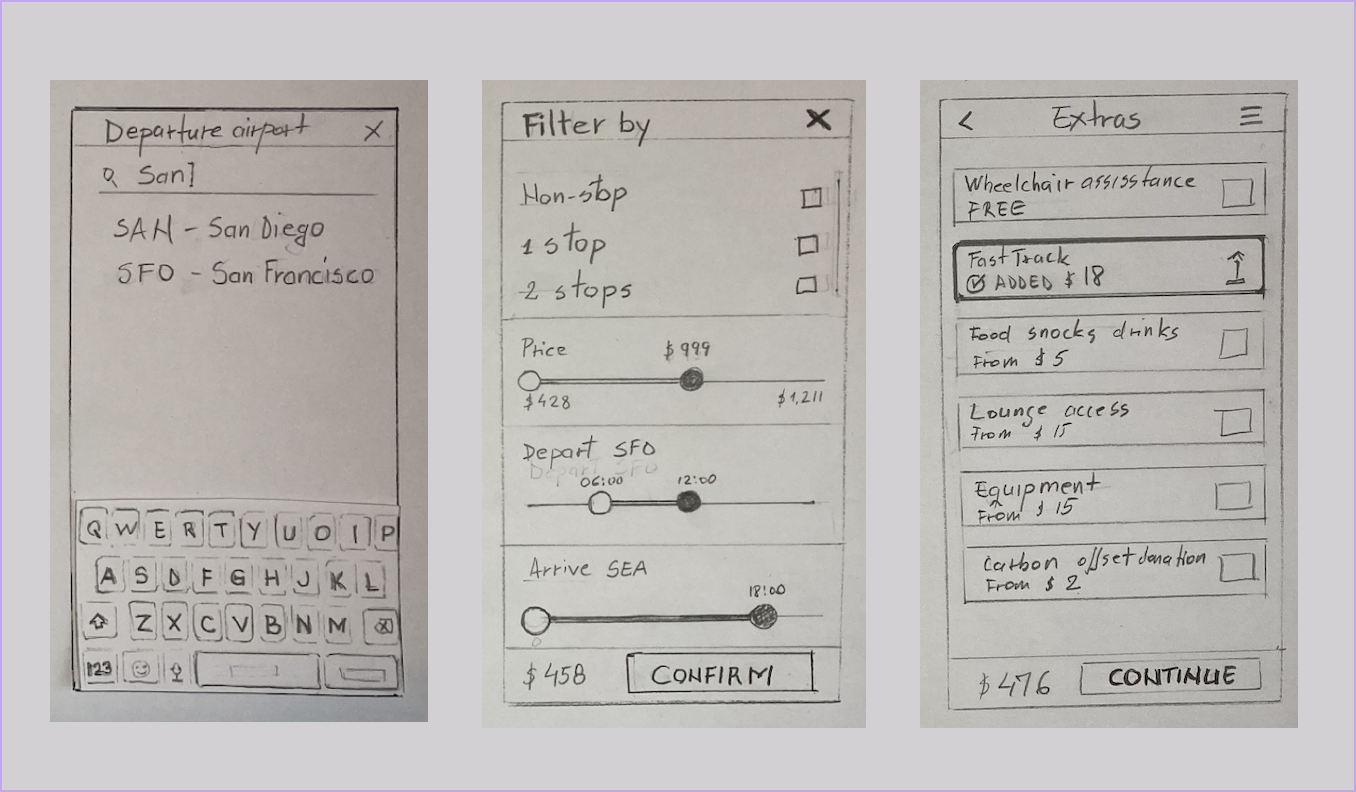 Departure airport X
San
SAN - San Diego
SFO - San Francisco
Q W E R T Y U O I P
A S D F G H J K L
Z X C V B N M
123
Filter by X
Non-stop
1 stop
2 stops
Price $999
$428 $1,211
Depart SFO
Depart SFO
06:00 12:00
Arrive SEA
18:00
$458 CONFIRM
< Extras
Wheelchair assisstance
FREE
Fast Track
ADDED $18
Food snocks drinks
From $5
Lounge access
From $15
Equipment
From $15
Carbon offset donation
From $2
$476 CONTINUE